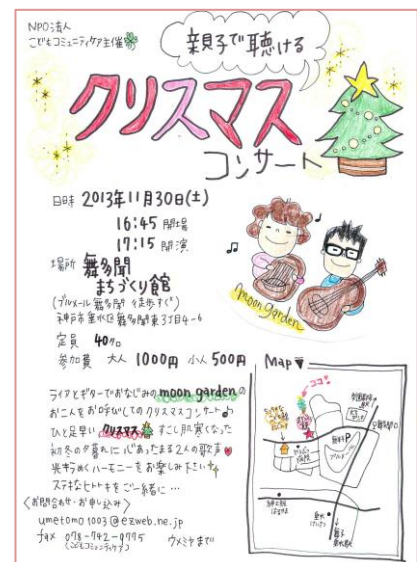 NPO法人
こどもコミュニティケア主催
親子で聴ける
クリスマス
コンサート
日時 2013年11月30日(土)
16:45 開場
17:15 開演
場所 舞多聞
まちづくり館
(ブルメール舞多聞 徒歩すぐ)
神戸市垂水区舞多聞東3丁目4-6
定員 40名
参加費 大人 1000円 小人 500円
moon garden
ライアとギターでおなじみのmoon gardenの
お二人をお呼びしてのクリスマスコンサート♪
ひと足早いクリスマス すこし肌寒くなった
初冬の夕暮れに 心あったまる2人の歌声♥
煌めくハーモニーをお楽しみ下さい
ステキなヒトトキをご一緒に…
〈お問合わせ・お申し込み〉
umetomo1003@ezweb.ne.jp
fax 078-742-9775 ウメミヤまで
(こどもコミュニティケア)
Map▼
ココ!
無料P